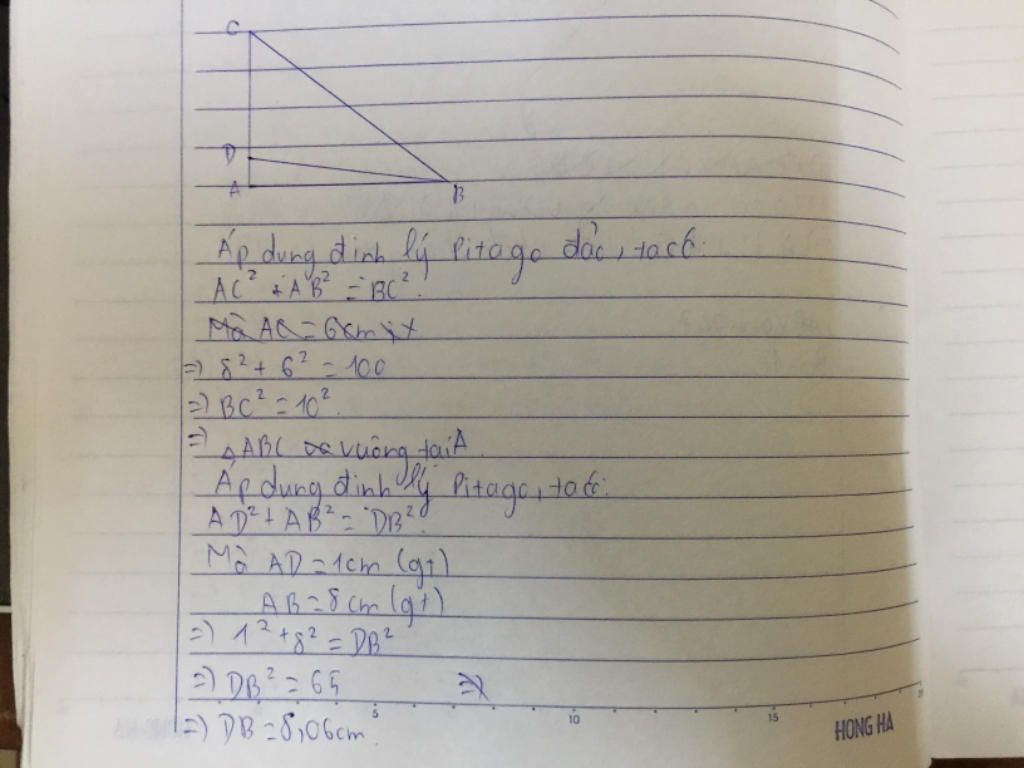 C
D
A
B
Áp dụng định lý Pitago đảo, ta có:
AC² + AB² = BC².
Mà AC = 6cm; x
=> 8² + 6² = 100
=> BC² = 10².
=> △ABC vuông tại A.
Áp dụng định lý Pitago, ta có:
AD² + AB² = DB².
Mà AD = 1cm (gt)
AB = 8cm (gt)
=> 1² + 8² = DB²
=> DB² = 65 =>
5 10 15
=> DB = 8,06cm.
HONG HA